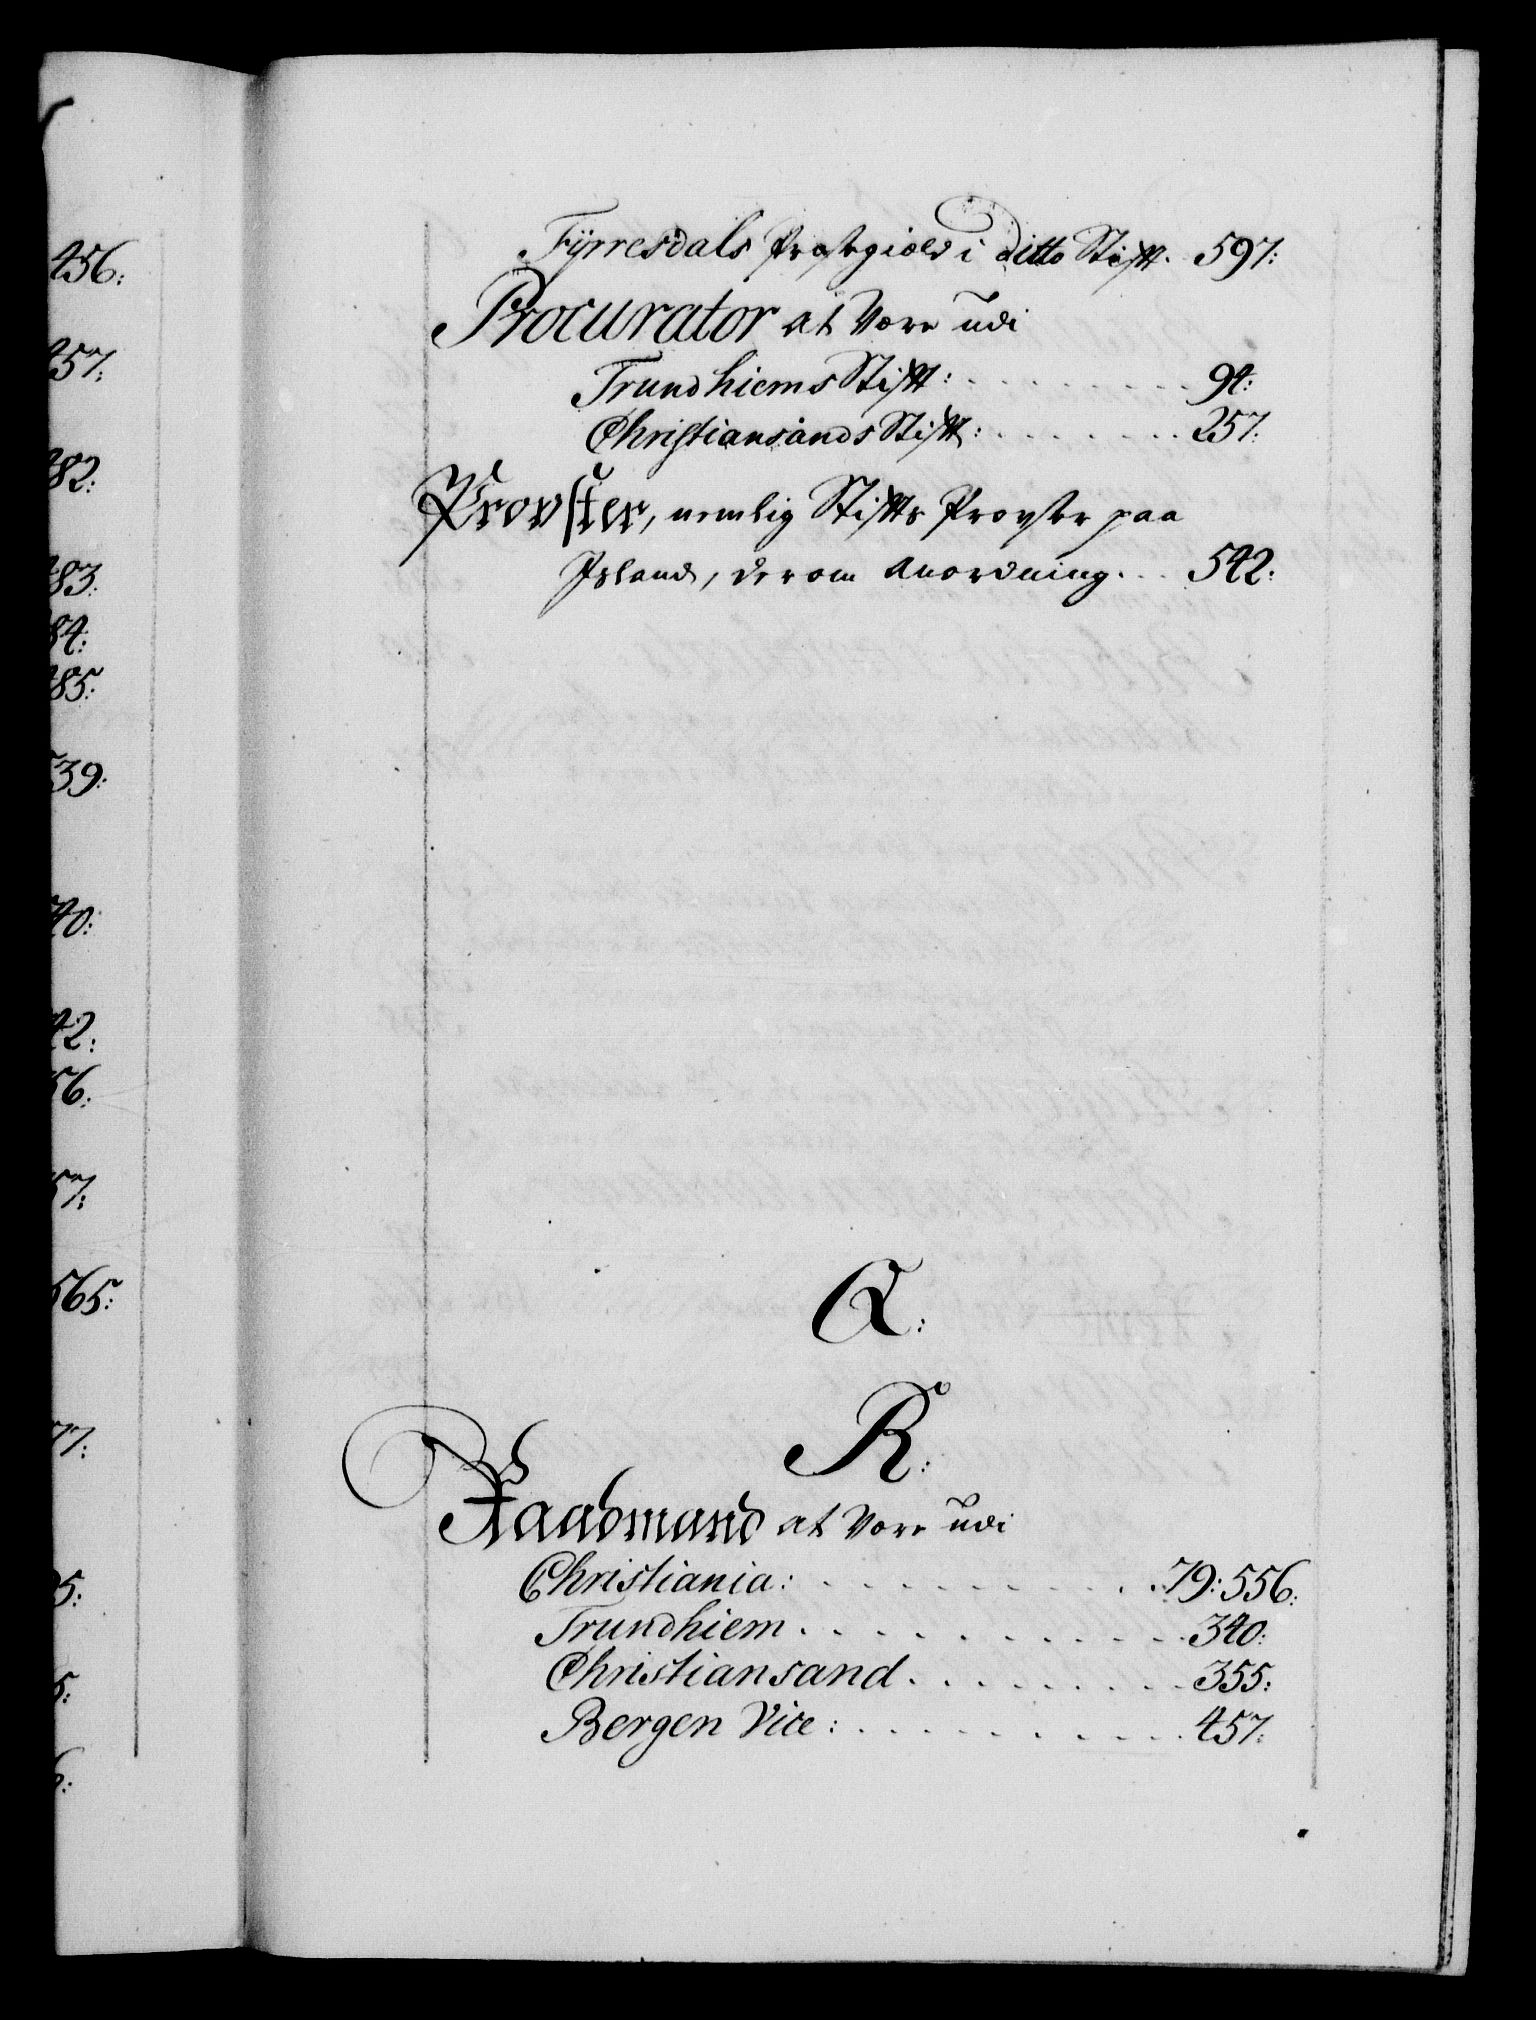 456:
457:
382:
383:
84:
385:
539:
540:
42:
56:
57:
565:
77:
5:
5:
6:
Fÿrresdals Præstegield i Ditto Stift. 597:
Procurator at være udi
Trundhiems Stift: . . . . . . . . . 94:
Christiansands Stift: . . . . . . . . 257:
Provster, nemlig Stifts Provster paa
Island, derom Anordning. . . 542:
Q:
R:
Raadmand at være udi
Christiania: . . . . . . . . . . 79: 556:
Trundhiem . . . . . . . . . . . 340:
Christiansand . . . . . . . . . 355:
Bergen Vice: . . . . . . . . . . 457: